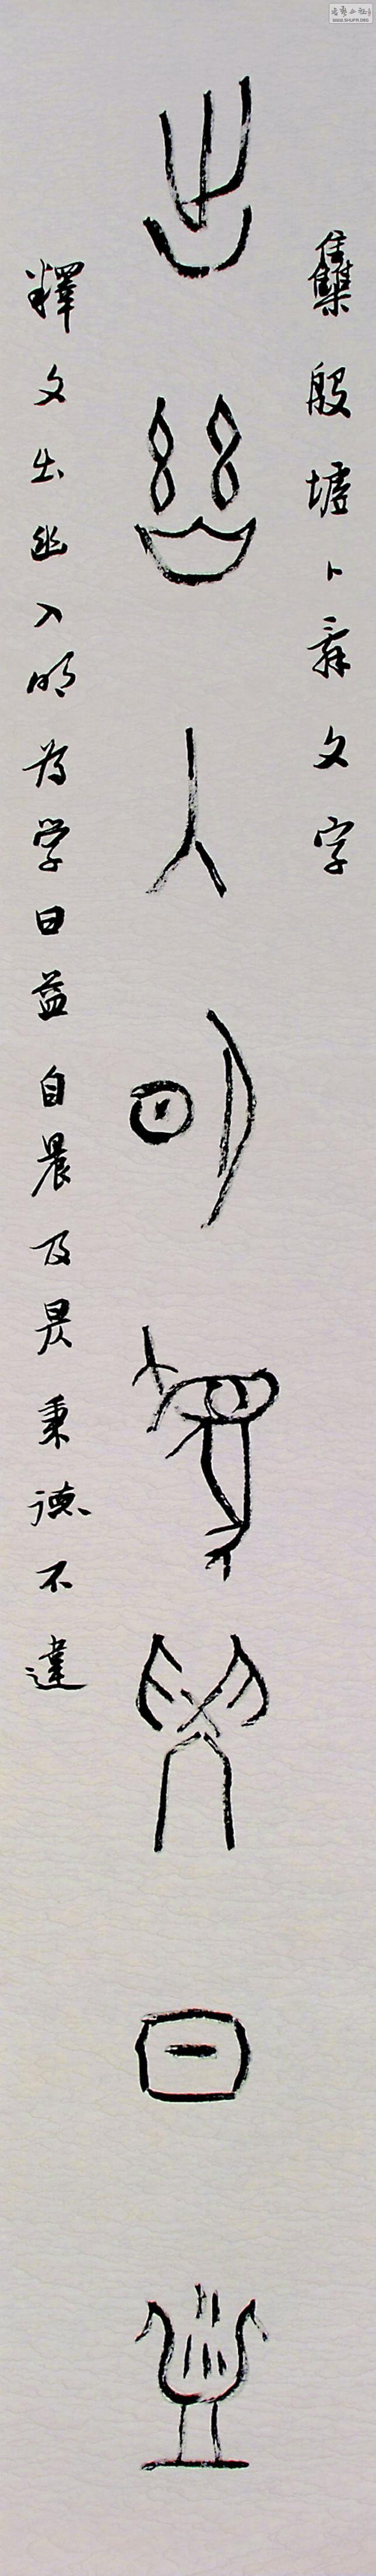 集殷墟卜辭文字
出幽入明為學日益
釋文出幽入明為学日益自晨及昃秉德不違
WWW.SHUFA.ORG